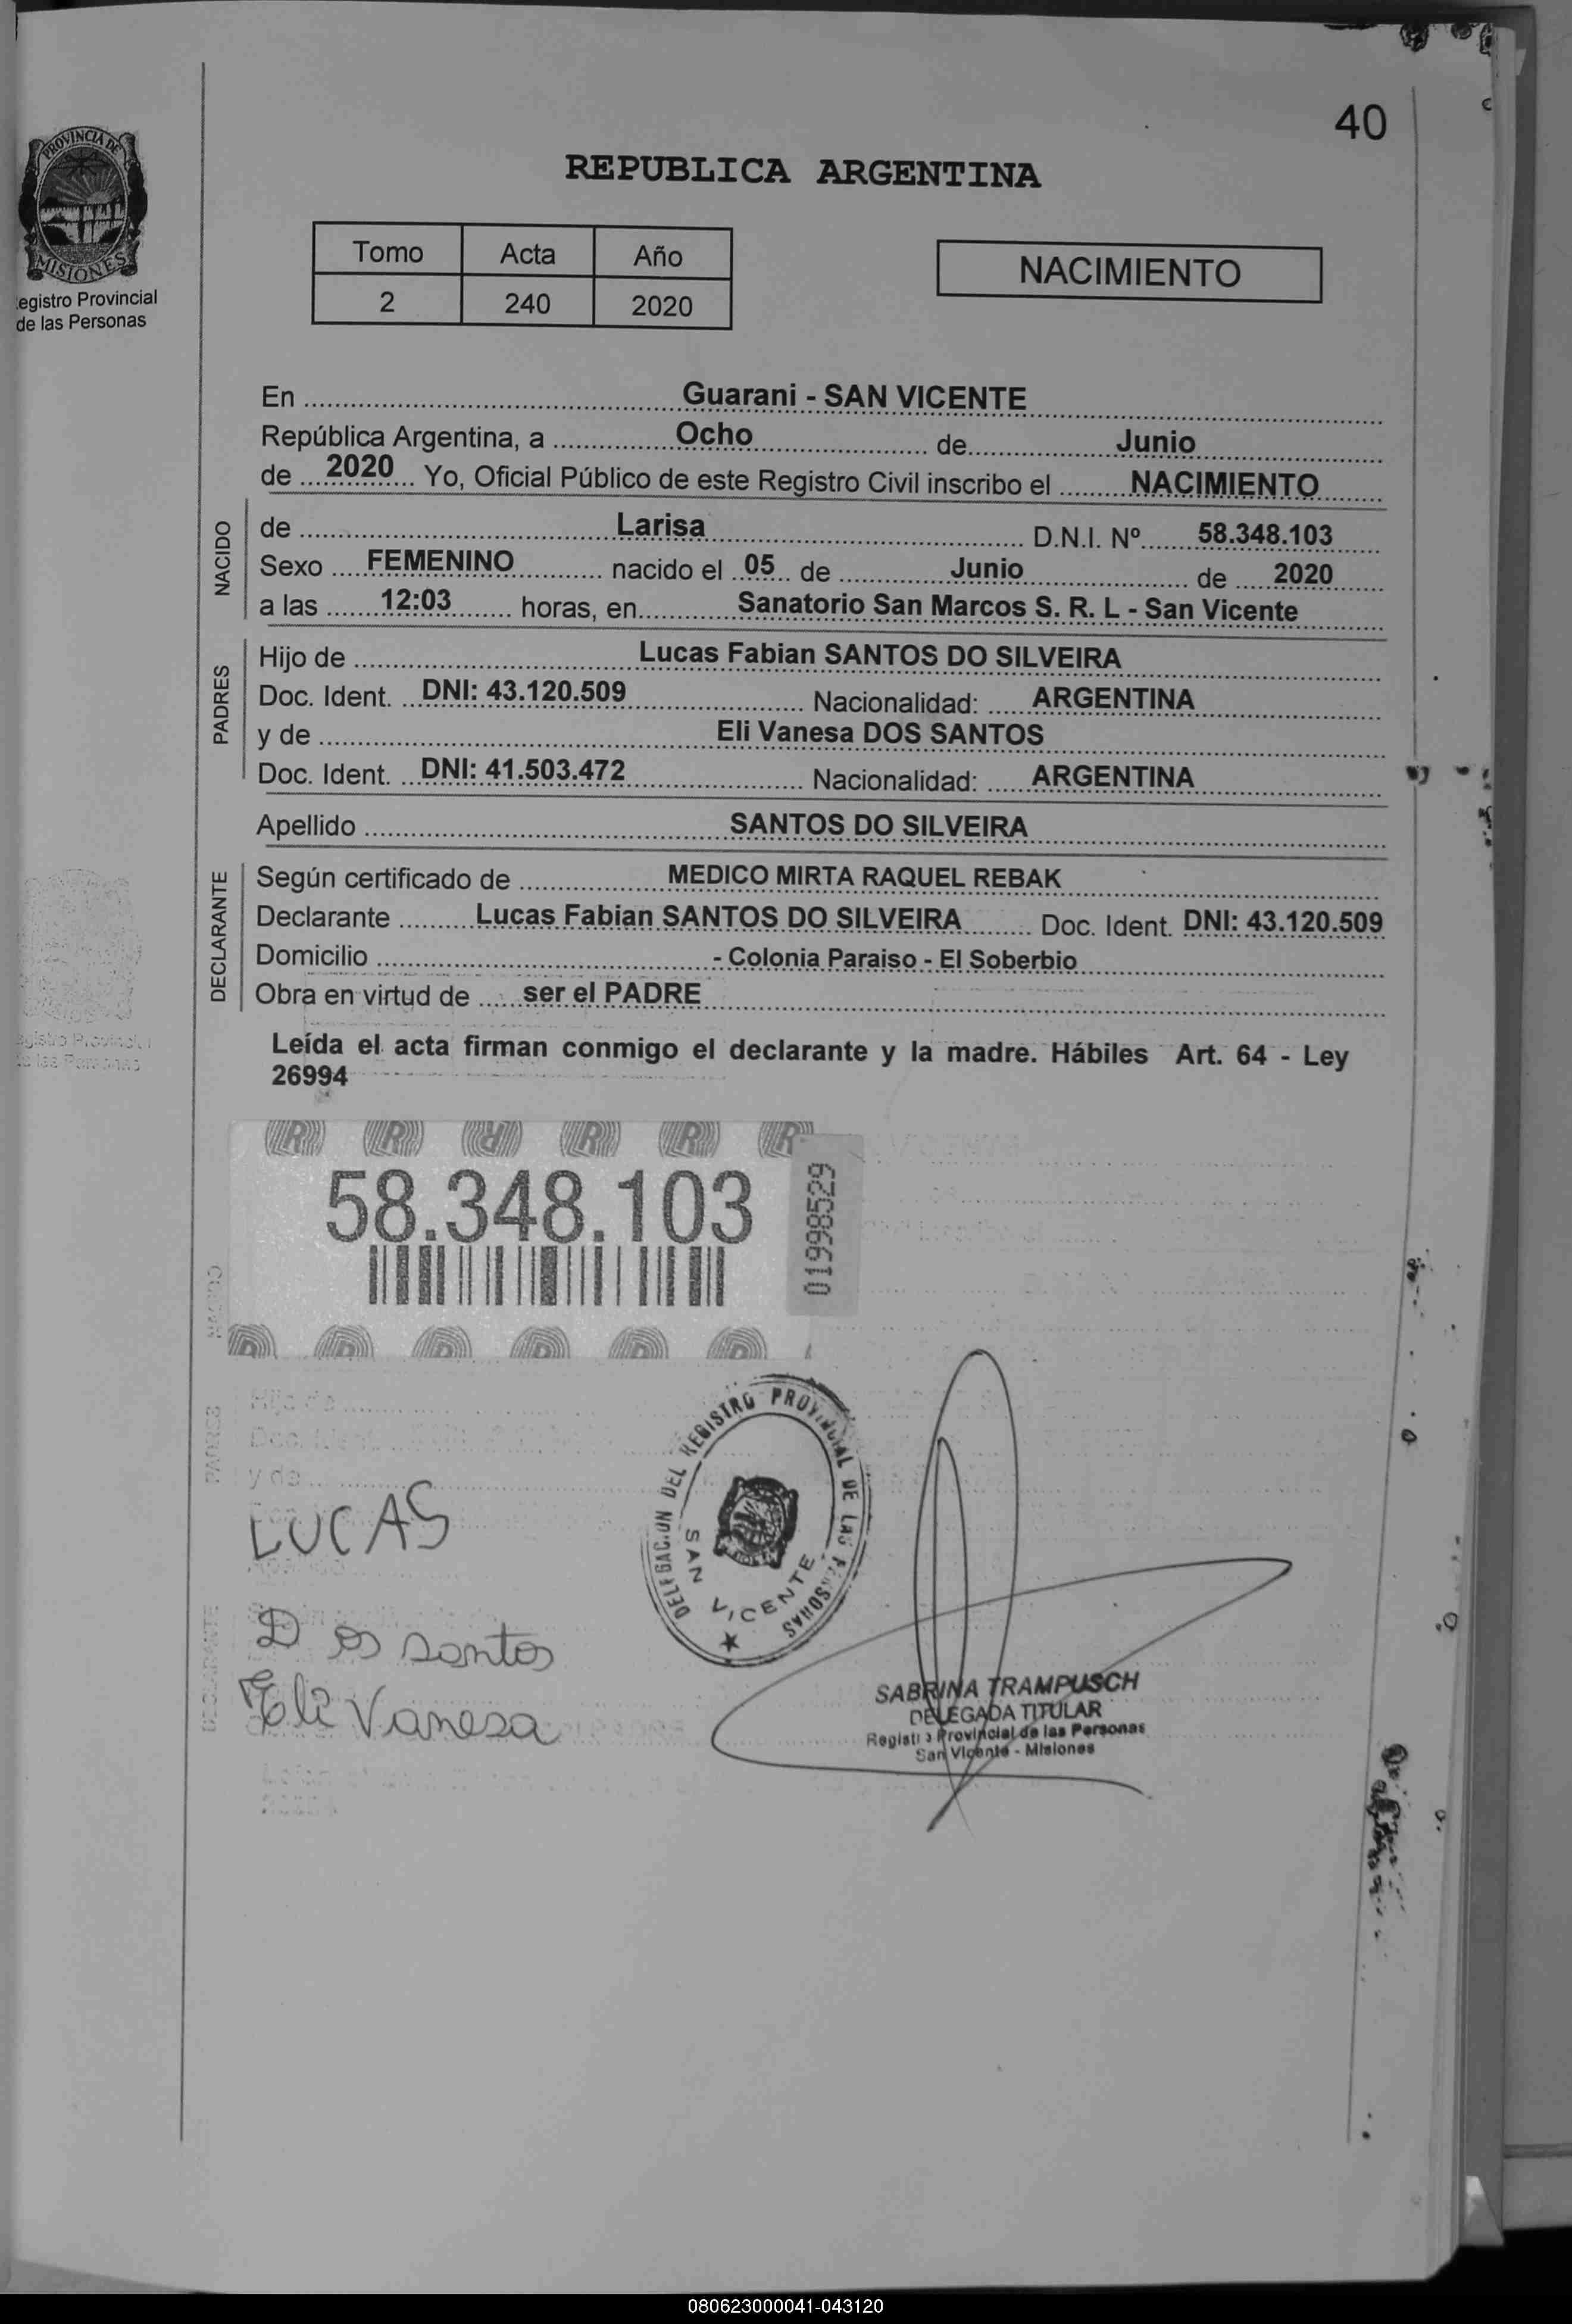 40
PROVINCIA DE
MISIONES
egistro Provincial
de las Personas
REPUBLICA ARGENTINA
Tomo Acta Año
2 240 2020
NACIMIENTO
En Guarani - SAN VICENTE
República Argentina, a Ocho de Junio
de 2020 Yo, Oficial Público de este Registro Civil inscribo el NACIMIENTO
NACIDO
de Larisa D.N.I. Nº 58.348.103
Sexo FEMENINO nacido el 05 de Junio de 2020
a las 12:03 horas, en Sanatorio San Marcos S. R. L - San Vicente
PADRES
Hijo de Lucas Fabian SANTOS DO SILVEIRA
Doc. Ident. DNI: 43.120.509 Nacionalidad: ARGENTINA
y de Eli Vanesa DOS SANTOS
Doc. Ident. DNI: 41.503.472 Nacionalidad: ARGENTINA
Apellido SANTOS DO SILVEIRA
DECLARANTE
Según certificado de MEDICO MIRTA RAQUEL REBAK
Declarante Lucas Fabian SANTOS DO SILVEIRA Doc. Ident. DNI: 43.120.509
Domicilio - Colonia Paraiso - El Soberbio
Obra en virtud de ser el PADRE
Leída el acta firman conmigo el declarante y la madre. Hábiles Art. 64 - Ley
26994
58.348.103
01998529
DELEGACION DEL REGISTRO PROVINCIAL DE LAS PERSONAS
SAN VICENTE
LUCAS
Dos santos
Eli Vanesa
SABRINA TRAMPUSCH
DELEGADA TITULAR
Registro Provincial de las Personas
San Vicente - Misiones
080623000041-043120